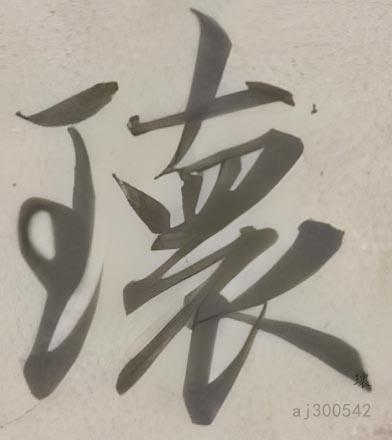 瓌
瓌
aj300542